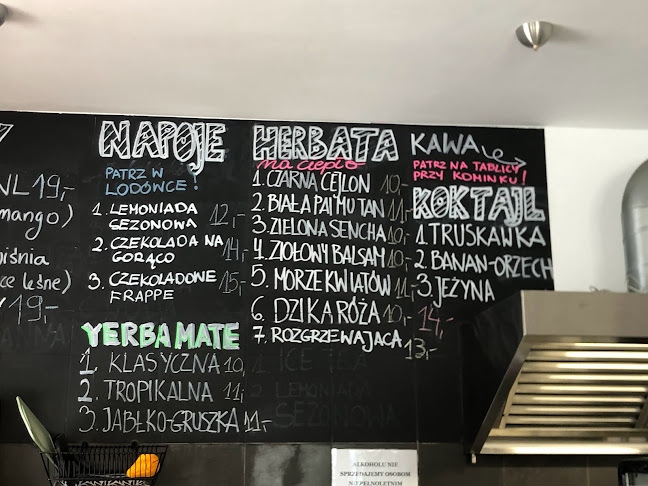 NL 19,-
mango)
iśnia
ce leśne)
19,-
NAPOJE
PATRZ W
LODÓWCE!
1. LEMONIADA
SEZONOWA 12,-
2. CZEKOLADA NA
GORĄCO 14,-
3. CZEKOLADOWE
FRAPPE 15,-
YERBA MATE
1. KLASYCZNA 10,-
2. TROPIKALNA 11,-
3. JABŁKO-GRUSZKA 11,-
HERBATA
na ciepło
1. CZARNA CEJLON 10,-
2. BIAŁA PAI MU TAN 11,-
3. ZIELONA SENCHA 10,-
4. ZIOŁOWY BALSAM 10,-
5. MORZE KWIATÓW 11,-
6. DZIKA RÓŻA 10,-
7. ROZGRZEWAJĄCA 13,-
1. ICE TEA
LEMONIADA
SEZONOWA
KAWA
PATRZ NA TABLICY
PRZY KOMINKU!
KOKTAJL
1. TRUSKAWKA
2. BANAN-ORZECH
3. JEŻYNA
14,-
ALKOHOLU NIE
SPRZEDAJEMY OSOBOM
NIEPEŁNOLETNIM